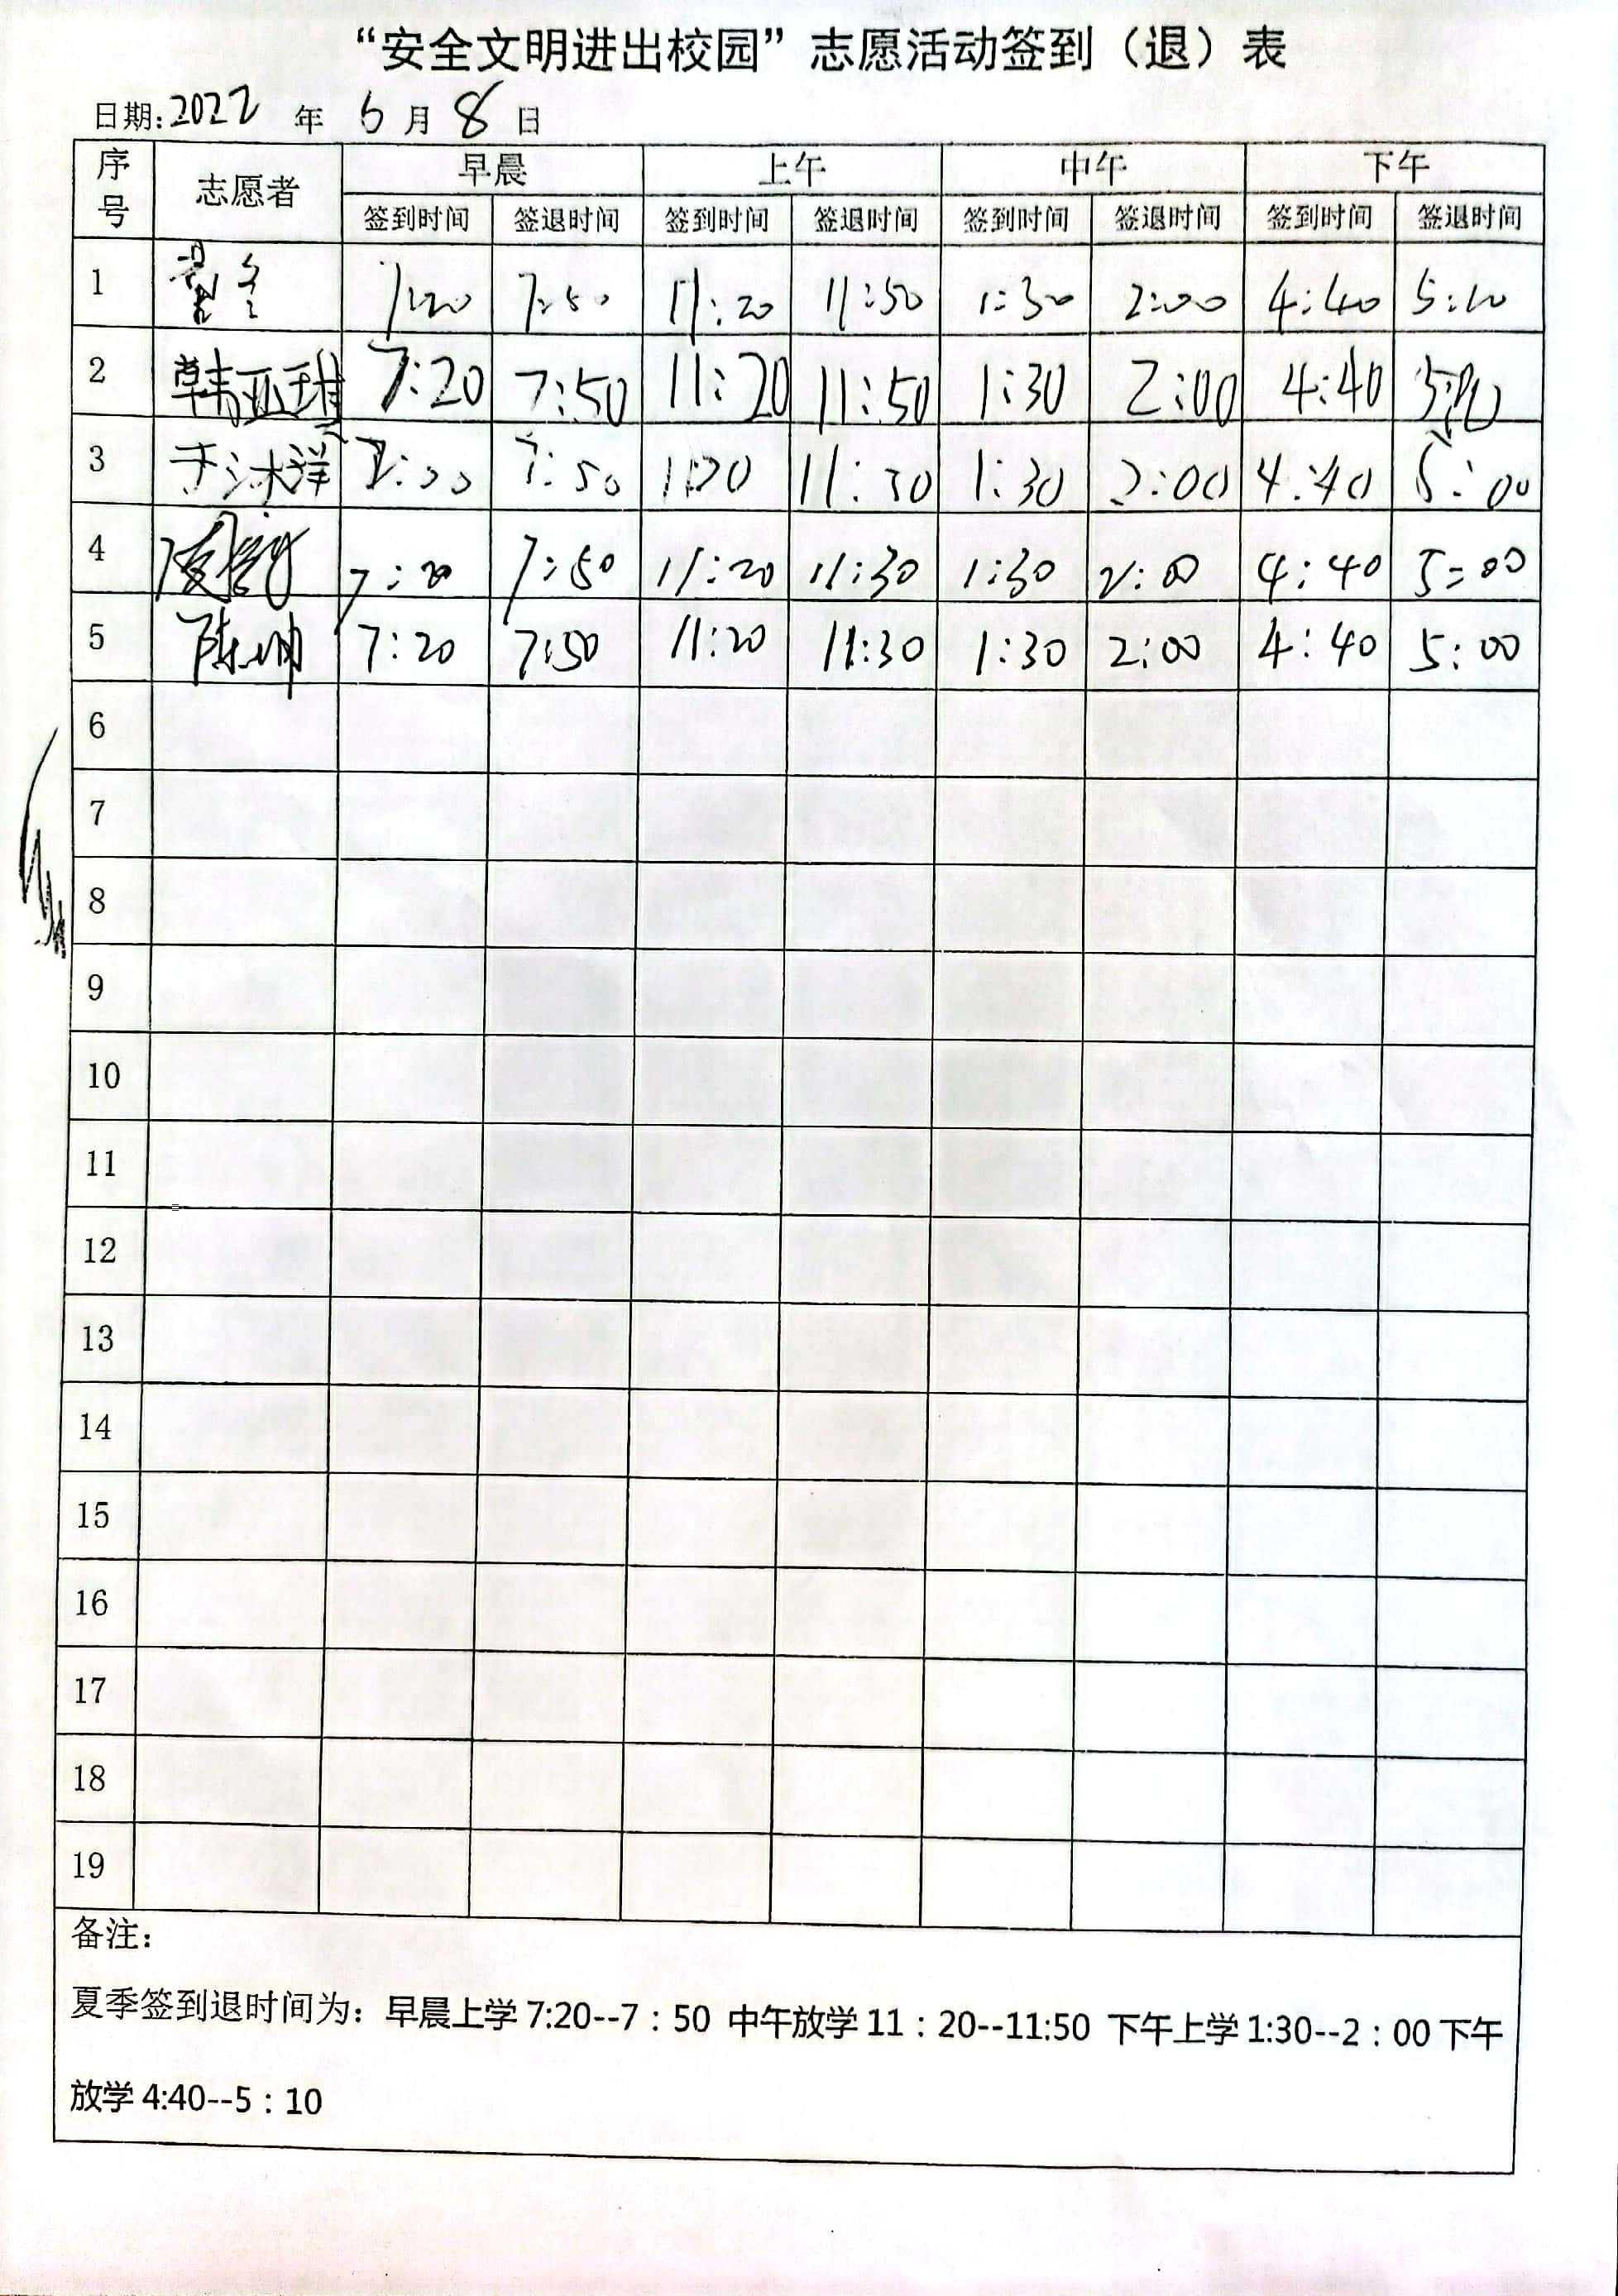 “安全文明进出校园”志愿活动签到（退）表
日期:2022 年 6 月 8 日
序号 志愿者 早晨 上午 中午 下午
签到时间 签退时间 签到时间 签退时间 签到时间 签退时间 签到时间 签退时间
1 7:20 7:50 11:20 11:50 1:30 2:00 4:40 5:10
2 韩亚琪 7:20 7:50 11:20 11:50 1:30 2:00 4:40
3 7:50 1120 11:30 1:30 2:00 4:40 5:00
4 7:20 7:50 11:20 11:30 1:30 2:00 4:40 5:00
5 陈帅 7:20 7:50 11:20 11:30 1:30 2:00 4:40 5:00
6
7
8
9
10
11
12
13
14
15
16
17
18
19
备注：
夏季签到退时间为：早晨上学 7:20--7：50 中午放学 11：20--11:50 下午上学 1:30--2：00 下午
放学 4:40--5：10